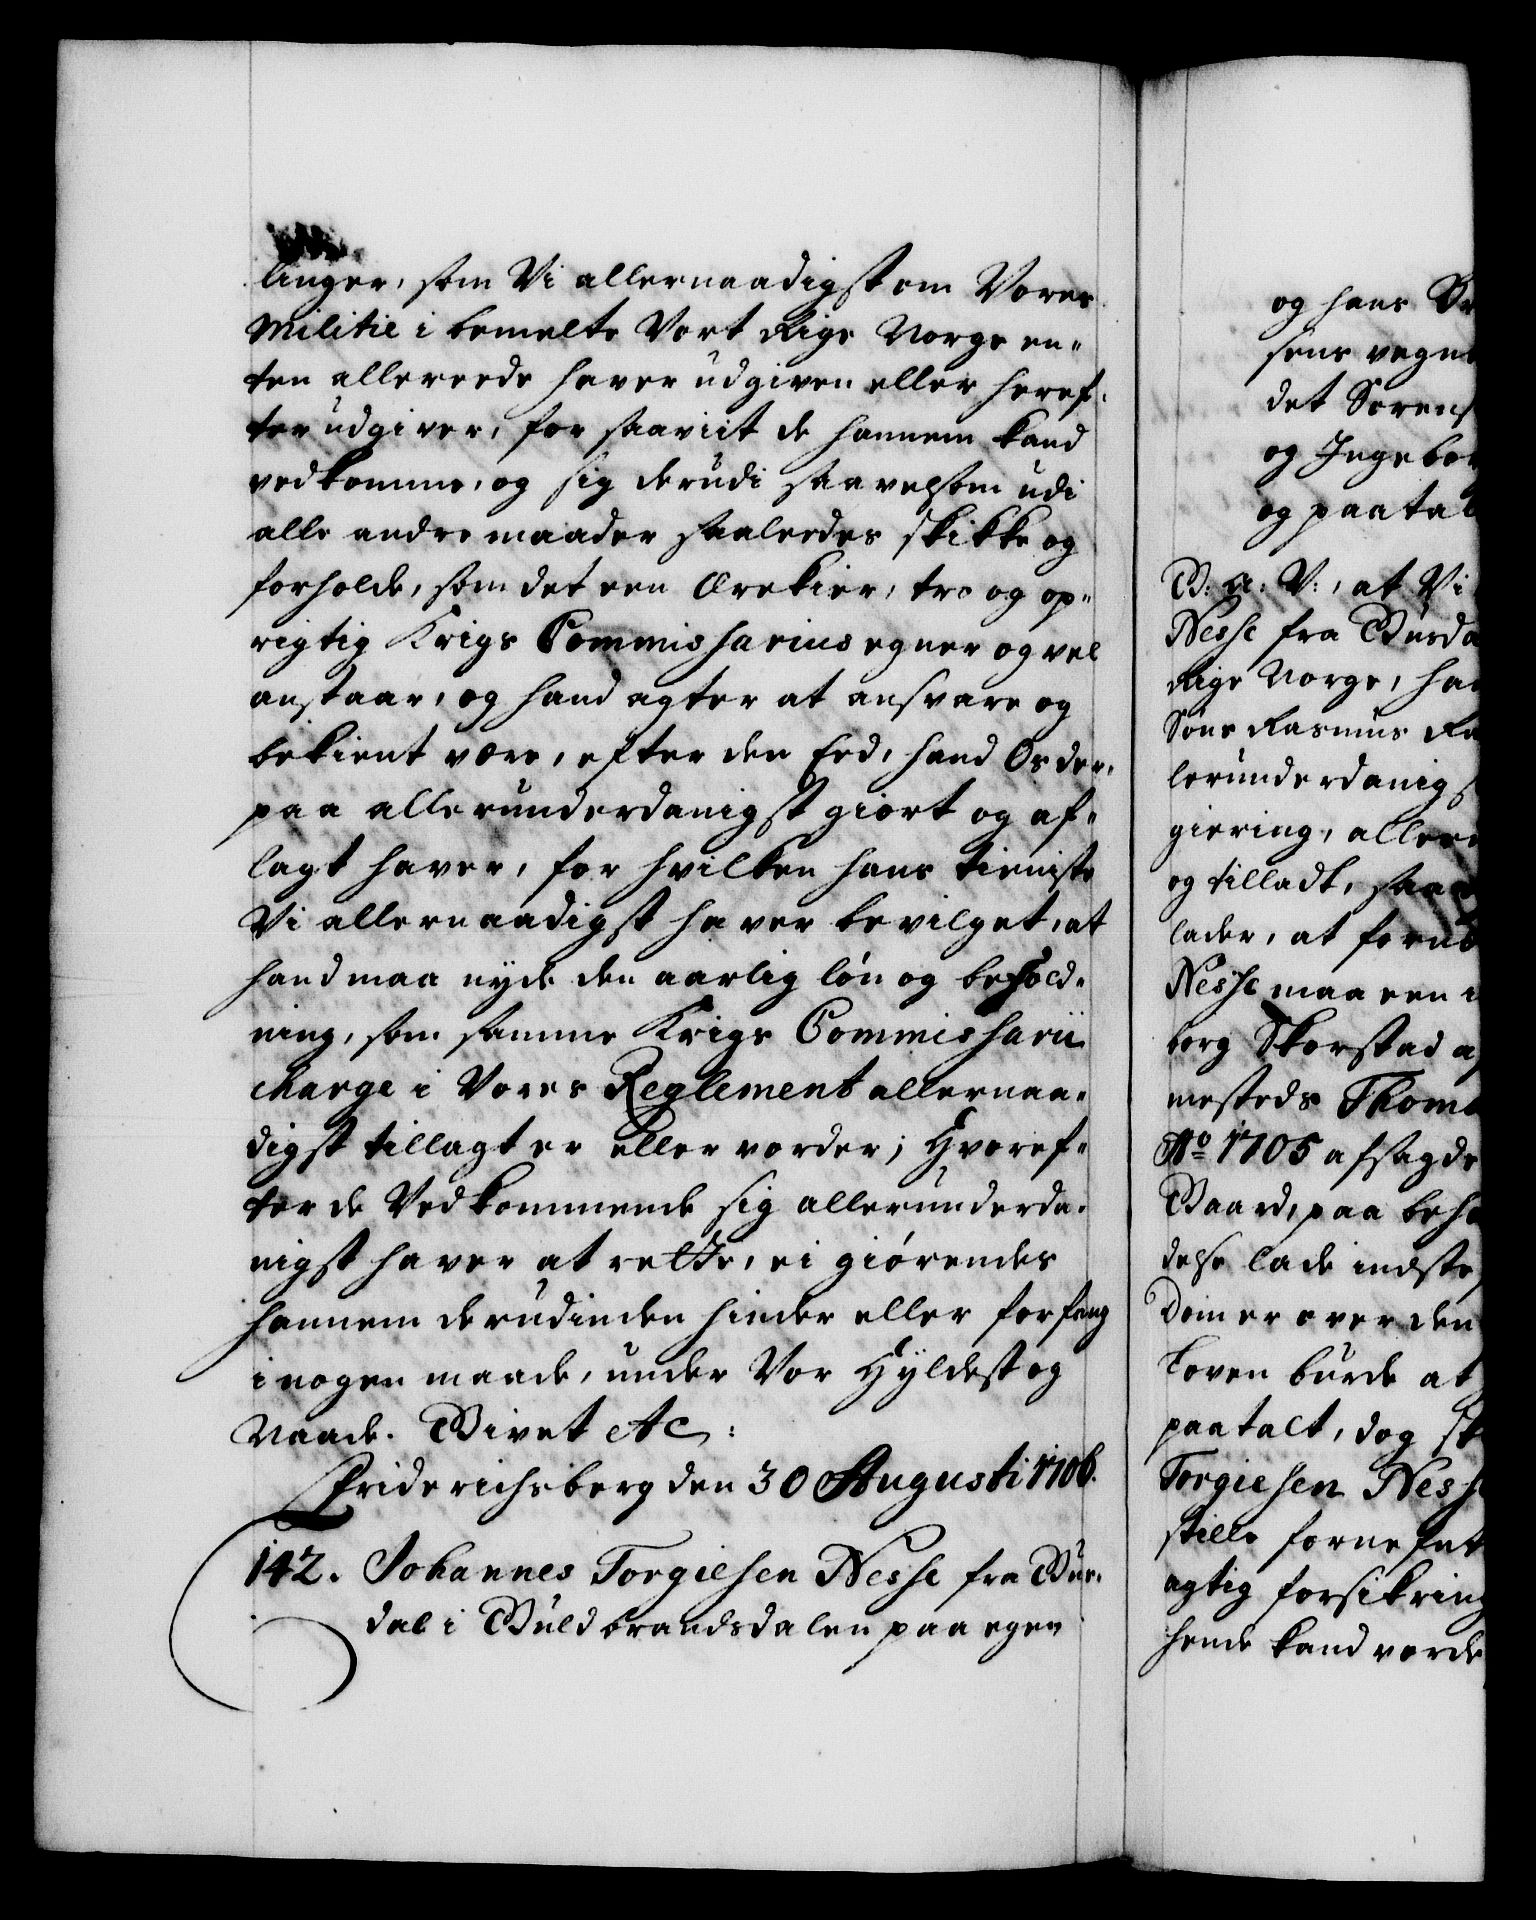 linger, som Vi allernaadigst om Vores
Militie i bemelte Vort Rige Norge en-
ten allereede haver udgiven eller heref-
ter udgiver, for saaviit de hannem kand
vedkomme, og sig derudi saavelsom udi
alle andre maader saaledes skikke og
forholde, som det een Ærekier, tro og op-
rigtig Krigs Commissarius egner og vel
anstaar, og hand agter at ansvare og
bekient være, efter den Eed, hand Os der-
paa allerunderdanigst giort og af-
lagt haver, for hvilken hans tieniste
Vi allernaadigst haver bevilget, at
hand maa nyde den aarlig løn og behold-
ning, som samme Krigs Commissarii
charge i Vores Reglement allernaa-
digst tillagt er eller vorder; Hvoref-
ter de Vedkommende sig allerunderda-
nigst haver at rette, ei giørendes
hannem derudinden hinder eller forfang
i nogen maade, under Vor Hyldest og
Naade. Givet etc:
Friderichsberg den 30 Augusti 1706.
142. Johannes Torgiesen Nesse fra Gus-
dal i Guldbrandsdalen paa egen
og hans
sens vegne
det Sørens
og Ingebor
og paatal
G: A: V:, at Vi
Nesse fra Gusda
Rige Norge, ha
Søns Rasmus Ra
lerunderdanigs
giering, aller
og tilladt, saa
lader, at forne
Nesse maa een
borg Skorstad a
mesteds Thom
Ao 1705 afsagde
Gaard, paa beho
delse lade indste
Dom er over den
Loven burde at
paatalt, dog sk
Torgiesen Ness
stille fornøfut
agtig forsikring
hende kand vorde